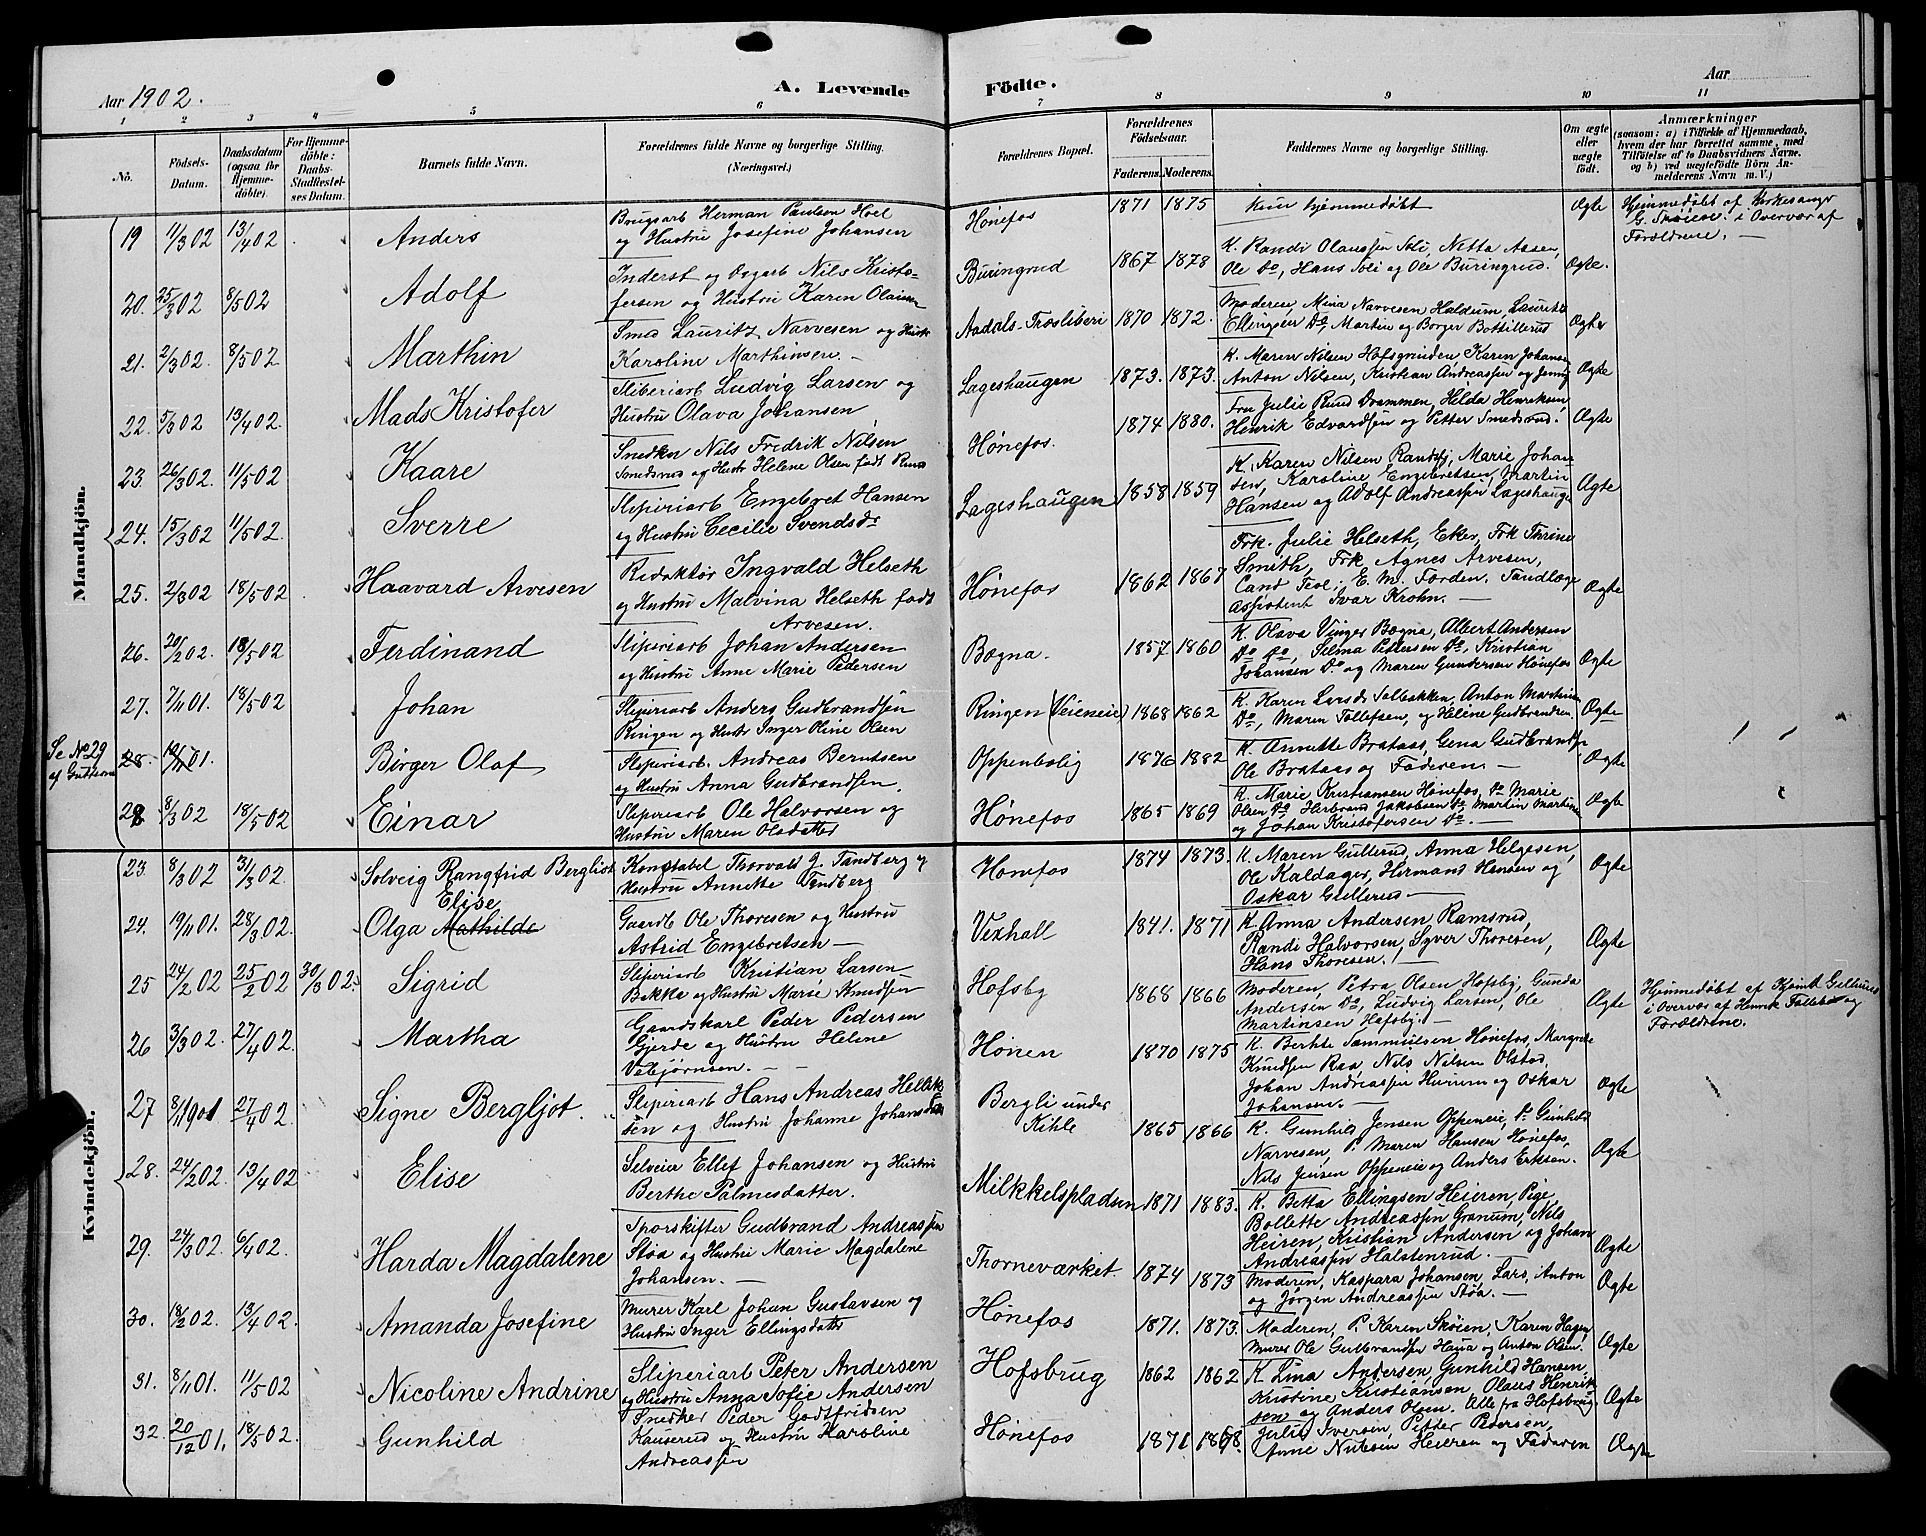 Aar 1902. A. Levende Födte. Aar
1 2 3 4 5 6 7 8 9 10 11
No. Födsels-Datum. Daabsdatum (ogsaa for Hjemmedöbte). For Hjemmedöbte: Daabs-Stadfæstelses Datum. Barnets fulde Navn. Forældrenes fulde Navne og borgerlige Stilling. (Næringsvei.) Forældrenes Bopæl. Forældrenes Födselsaar. Faderens. Moderens. Faddernes Navne og borgerlige Stilling. Om ægte eller uægte födt. Anmærkninger (saasom: a) i Tilfælde af Hjemmedaab, hvem der har forrettet samme, med Tilföielse af to Daabsvidners Navne, og b) ved uægtefödte Börn Anmelderens Navn m. V.)
Mandkjön.
19 11/3 02 13/4 02 Anders Brugsarb Herman Paulsen Hoel og Hustru Josefine Johansen Hönefos 1871 1875 Kun hjemmedöbt Ægte Hjemmedöbt af Kirkesanger G. Sköien i Overvær af Forældrene. —
20. 25/3 02 8/5 02 Adolf Inderst og Dagarb Nils Kristofersen og Hustru Karen Olaisen Buringrud 1867 1878 K. Randi Olaussen Soli, Netta Aasen, Ole Do, Hans Soli og Ole Buringrud. Ægte.
21. 2/3 02. 8/5 02 Marthin Smed Lauritz Narvesen og Hustr Karoline Marthinsen. — Aadals-Træsliberi 1870 1872. Moderen, Mina Narvesen Haldum, Lauritz Ellingsen Do, Martin og Borger Bottillrud Ægte
22. 5/3 02 13/4 02. Mads Kristofer Sliberiarb Ludvig Larsen og Hustru Olava Johansen Lageshaugen 1873. 1873. K. Maren Nilsen Hofsgrunden Karen Johansen Anton Nilsen, Kristian Andreassen og Jenny Ægte
23. 26/3 02. 11/5 02 Kaare Snedker Nils Fredrik Nilsen Smedsrud og Hustr Helene Olsen født Ruud Hönefos. 1874 1880. Fru Julie Ruud Drammen, Helda Henriksen, Henrik Edvardsen og Petter Smedsrud. Ægte
24. 15/3 02 11/5 02. Sverre Sliperiarb Engebret Hansen og Hustru Cecilie Svendsdr Lageshaugen 1858 1859 K. Karen Nilsen Randsfj, Marie Johansen, Karoline Engebretsen, Martin Hansen og Adolf Andreassen Lageshauge Ægte
25. 2/3 02 18/5 02 Haavard Arvesen Redaktör Ingvald Helseth og Hustru Malvina Helseth født Arvesen. Hönefos 1862 1867 Frk. Julie Helseth, Eker, Frk Thrine Smith, Frk Agnes Arvesen, Cand Teol; E. M. Forden. Tandlæge Assistent Ivar Krohn. — Ægte
26. 20/2 02. 18/5 02 Ferdinand Sliperiarb Johan Andersen og Hustru Anne Marie Pedersen Bægna. 1857 1860 K. Olava Vinger Bægna, Albert Andersen Do Do, Selma Pettersen Do, Kristian Johansen Do og Maren Gundersen Hönefos Ægte
27. 7/11 01. 18/5 02 Johan Sliperiarb Anders Gudbrandsen Ringen og Hustr Inger Oline Olsen Ringen (Veieneie) 1868 1862 K. Karen Larsdr Solbakken, Anton Martinsen Do, Maren Tollefsen, og Helene Gudbrandsen. Ægte
Se No 29
28. 01. Birger Olaf Sliperiarb. Andreas Berntsen og Hustru Anna Gudbrandsen. Oppenbolig 1876 1882 K. Annette Brataas, Gena Gudbrandsen Ole Brataas og Faderen. — Ægte
28 8/3 02 18/5 02 Einar Sliperiarb Ole Halvorsen og Hustru Maren Olsdatter Hönefos 1865 1869 K. Marie Kristiansen Hönefos, Do Marie Olsen Do Herbrand Jakobsen Do, Martin Martinsen og Johan Kristofersen Do. — Ægte
Kvindekjön.
23. 8/3 02 31/3 02. Solveig Rangfrid Bergliot Konstabel Thorvald J. Tandberg og Hustru Annette Tandberg Hönefos 1874 1873. K. Maren Gullerud, Anna Helgesen, Ole Kaldager, Hermand Hansen og Oskar Gullerud — Ægte
24. 19/11 01. 28/3 02. Olga Mathilde Elise Gaardb Ole Thoresen og Hustru Astrid Engebretsen — Vexhall 1841. 1871 K. Anna Andersen Ramsrud, Randi Halvorsen, Syver Thoresen, Hans Thoresen. Ægte
25 24/2 02 25/2 02 30/3 02. Sigrid Sliperiarb Kristian Larsen Bakke og Hustru Marie Knudsen Hofsby 1868 1866 Moderen, Petra Olsen Hofsby, Gunda Andersen Do, Ludvig Larsen, Ole Martinsen Hofsby. — Ægte Hjemmedöbt af i Overvær af Henrik og Forældrene.
26 3/3 02. 27/4 02. Martha Gaardskarl Peder Pedersen Gjerde og Hustru Helene Vebjørnsen. — Hönen 1870 1875 K. Berthe Sammuelsen Hönefos, Margrete Knudsen Raa, Nils Nilsen Olstad, Johan Andreassen Hurum og Oskar Johansen. — Ægte
27 8/1 1901 27/4 02. Signe Bergljot. Sliperiarb Hans Andreas Helleksen og Hustru Johanne Johansdr Bergli under Kihle 1865 1866 K. Gunhild Jensen Oppeneie, P. Gunhild Narvesen, P. Maren Hansen Hönefos, Nils Jensen Oppeneie og Anders Eriksen. Ægte
28. 24/2 02. 13/4 02 Elise Selveier Ellef Johansen og Hustru Berthe Palmesdatter. Milkkelspladsen 1871 1883. K. Betta Ellingsen Heieren, Pige, Bollette Andreassen Granum, Nils Heiren, Kristian Andersen og Johan Andreassen Halstenrud. Ægte
29. 24/3 02. 6/4 02. Harda Magdalene Sporskifter Gudbrand Andreassen Stöa og Hustru Marie Magdalene Johansen. — Thorneværket. 1874 1873 Moderen, Kaspara Johansen, Lars, Anton og Jörgen Andreassen Stöa. — Ægte
30. 18/2 02. 13/4 02. Amanda Josefine Murer Karl Johan Gustavsen og Hustru Inger Ellingsdatter Hönefos 1871. 1873. Moderen, P. Karen Skøien, Karen Hagen, Murer Ole Gulbrandsen Haua og Anton Olsen. Ægte
31. 8/11 01. 11/5 02 Nicoline Andrine Sliperiarb Peter Andersen og Hustru Anna Sofie Andersen Hofsbrug 1862 1862 K Lina Andersen, Gunhild Hansen, Kristine Kristiansen, Olaus Henriksen og Anders Olsen. Alle fra Hofsbrug. Ægte
32. 20/12 01. 18/5 02. Gunhild Snedker Peder Godtfridsen Kauserud og Hustru Karoline Andreassen Hönefos 1871 1868. Julie Iversen, Petter Pedersen, Anne Nilsen Heieren og Faderen Ægte